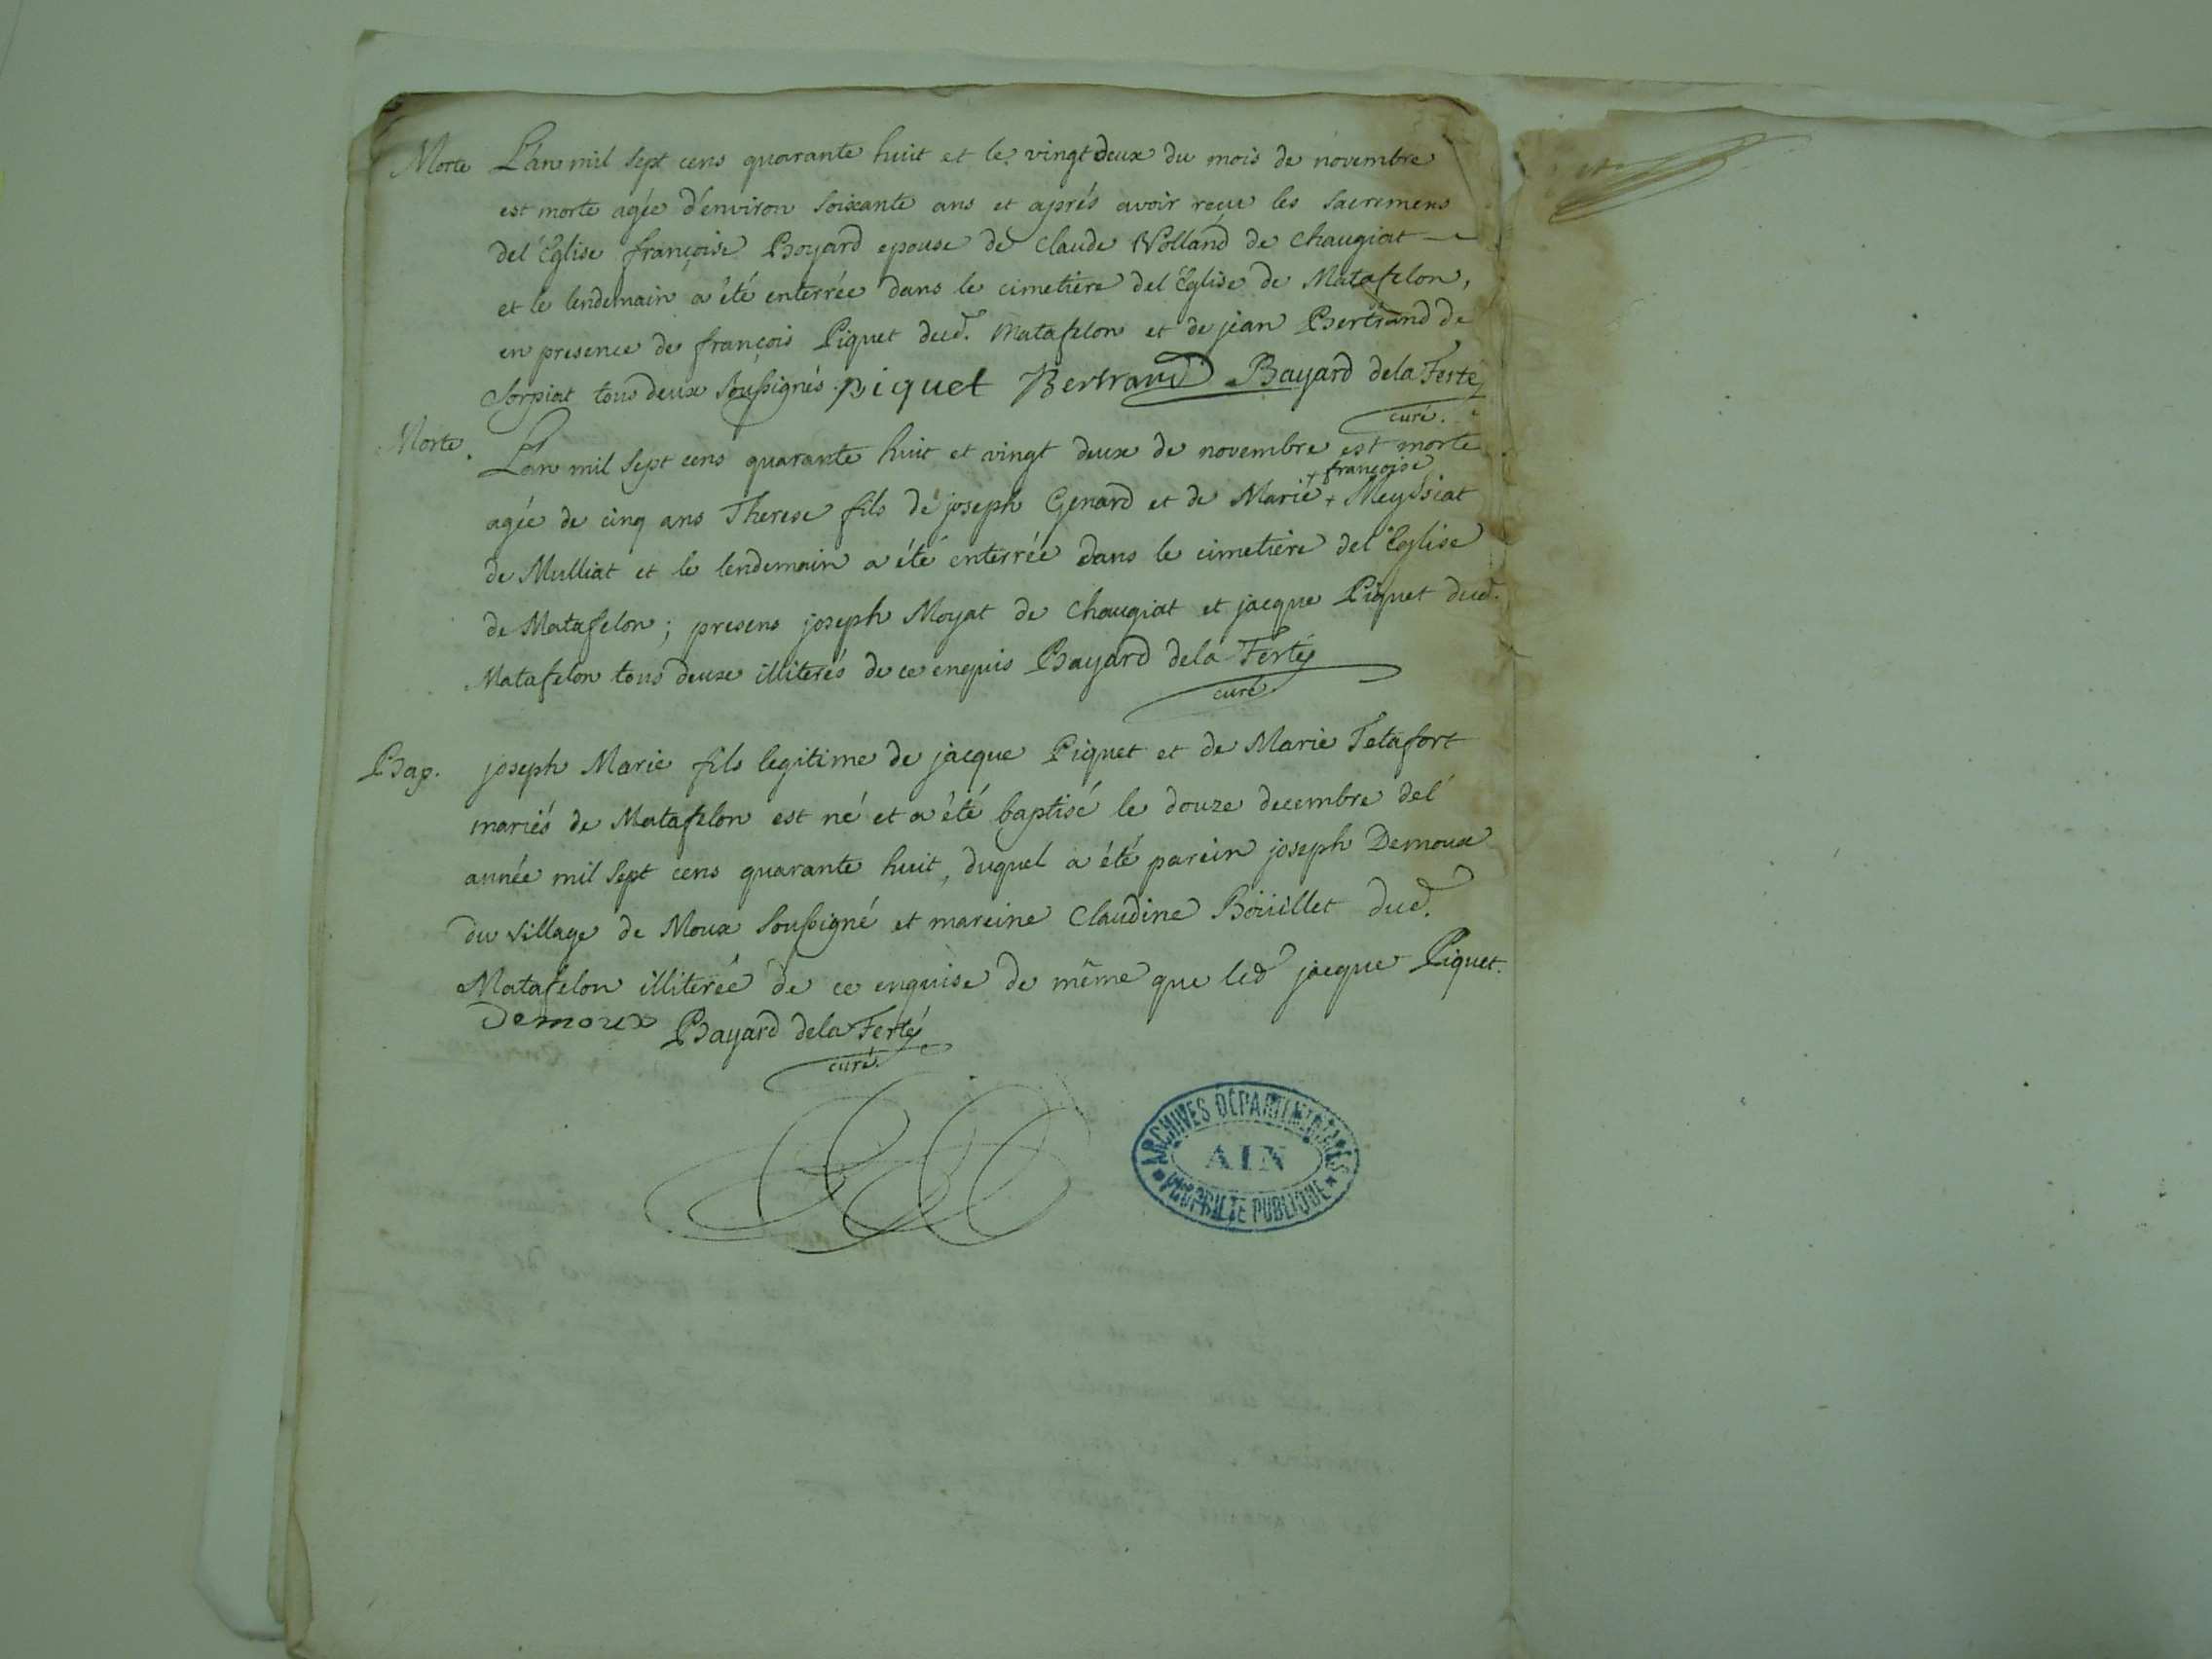 Morte L'an mil sept cens quarante huit et le vingt deux du mois de novembre
est morte agée d'environ soixante ans et aprés avoir recu les sacremens
del'Eglise françoise Boyard epouse de Claude Volland de Chaugiat
et le lendemain a été enterrée dans le cimetiére del'Eglise de Matafelon,
en presence de françois Piquet dud. Matafelon et de jean Bertrand de
Corpiat tous deux soussignés. piquet Bertrand Bayard dela Ferté
curé.
Morte. L'an mil sept cens quarante huit et vingt deux de novembre est morte
+ françoise
agée de cinq ans Therese fils de joseph Genard et de Marie + Meyssiat
de Mulliat et le lendemain a été enterrée dans le cimetiére del'Eglise
de Matafelon; presens joseph Moyat de Chaugiat et jacque Piquet dud.
Matafelon tous deux illiterés de ce enquis Bayard dela Ferté
curé.
Bap. joseph Marie fils legitime de jacque Piquet et de Marie Tetafort
mariés de Matafelon est né et a été baptisé le douze decembre del'
année mil sept cens quarante huit, duquel a été parein joseph Demoux
du village de Moux soussigné et mareine Claudine Boüillet dud.
Matafelon illiterée de ce enquise de même que led jacque Piquet.
Demoux Bayard dela Ferté
curé.
ARCHIVES DÉPARTEMENTALES
AIN
PROPRIÉTÉ PUBLIQUE